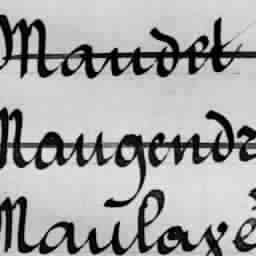 Maudet
Maugendr
Maulaxé